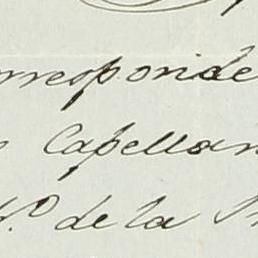 orresponde
Capellan
de la